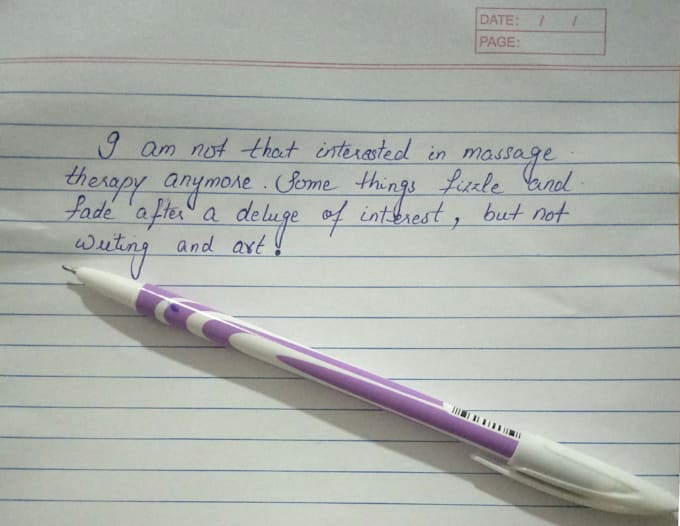 DATE: / /
PAGE:
I am not that interested in massage
therapy anymore. Some things fizzle and
fade after a deluge of interest, but not
writing and art!